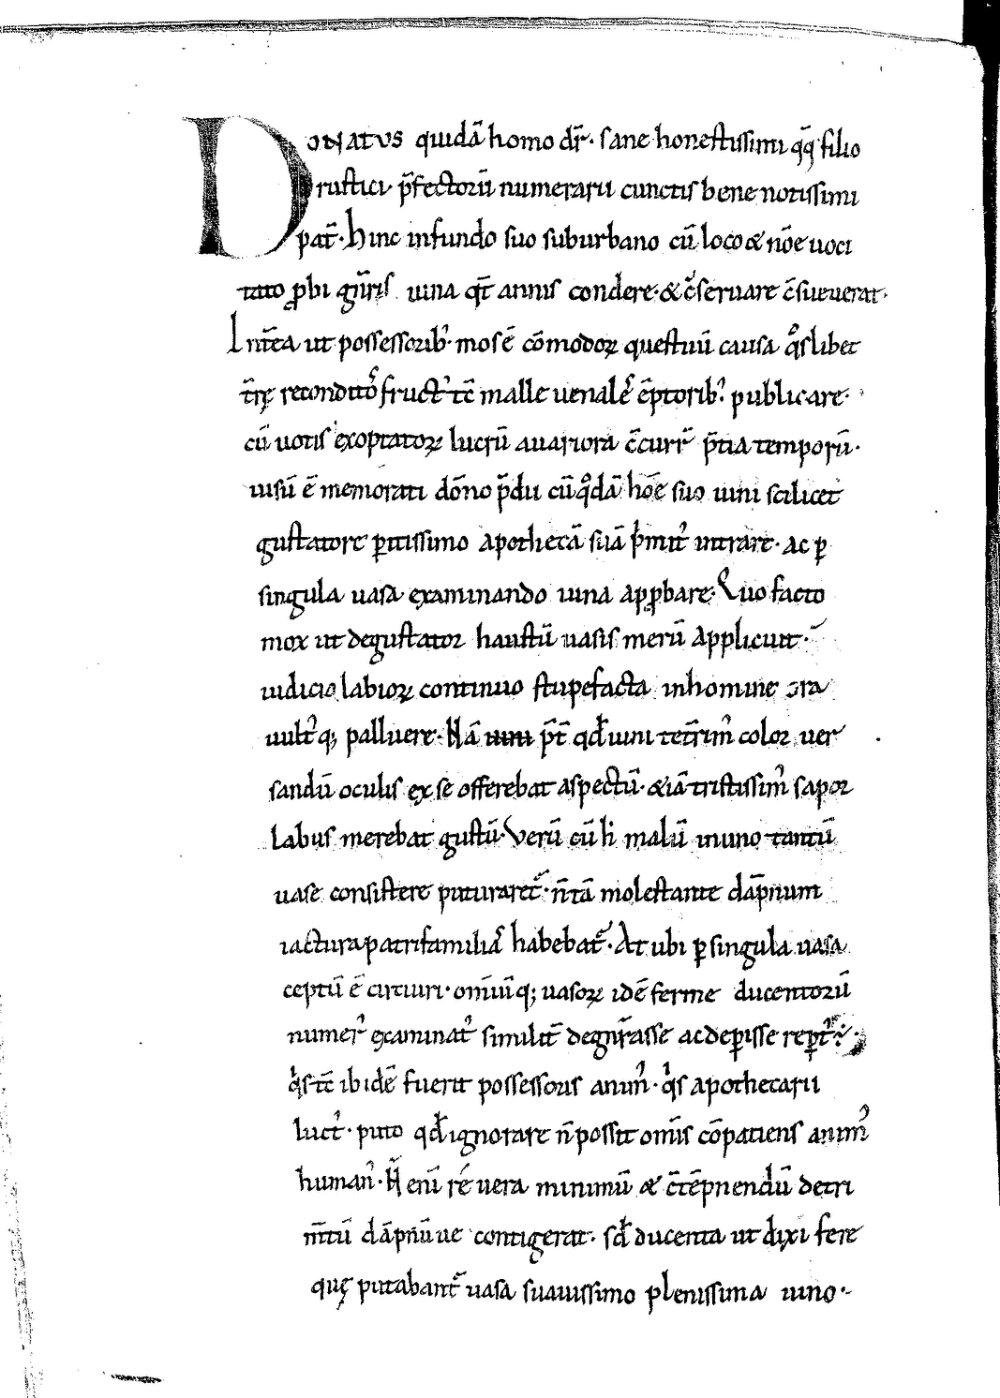 Donatus quidā homo dr̄· sane honestissimi qq̄ filio
rustici p̄fectorū numerarii cunctis bene notissimi
pat̄· hinc in fundo suo suburbano cū loco & nōe uoci
tato ꝓbi gn̄ris uina q̄t annis condere· & c̄seruare c̄sueuerat·
Int̄ea ut possessorib' mos ē cōmodoꝝ questuū causa qͦslibet
t̄rę reconditoꝝ fruct' tc̄ malle uenales ēptorib' publicare·
cū uotis exoptatoꝝ lucrū auariora c̄curr̄ p̄tia temporū·
uisū ē memorati dōno p̄dii cū qͦdā hōe suo uini scilicet
gustatore ꝑitissimo apothecā suā ꝑmit̄ intrare· ac ꝑ
singula uasa examinando uina apꝓbare· Quo facto
mox ut degustator haustū uasis merū applicuit·
iudicio labioꝝ continuo stupefacta in homine ora
uult'q; palluere· Nā p̄t qd̄ uini tet̄rim' color uer
sandū oculis ex se offerebat aspectū· & iā tristissim' sapor
labus merebat gustū· Verū cū h' malū in uno tantū
uase consistere putaret̄· n̄ tā molestante dāpnum
iactura patrifamilias habebat̄· At ubi ꝑ singula uasa
ceptū ē circuiri· omīuq; uasoꝝ idē ferme ducentorū
numer' examinat' similit̄ degn̄rasse ac deꝑisse reꝑt'·
qͥs tc̄ ibidē fuerit possessoris anim'· qͥs apothecarii
luct'· puto qd̄ ignorare n̄ possit omīs cōpatiens anim'
human'· N̄ enī re uera minimū & c̄tēpnendū detri
m̄tū dāpnūue contigerat· sd̄ ducenta ut dixi fere
quę putabant̄ uasa suauissimo plenissima uino·